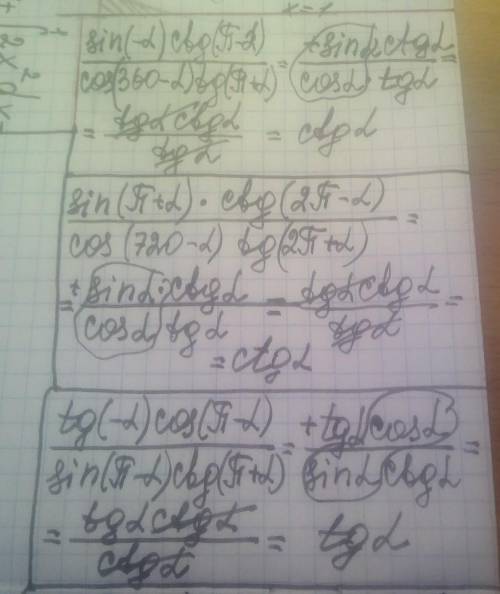 x=1
sin(-α) ctg(π-α) / cos(360-α) tg(π+α) = +sinα ctgα / cosα tgα =
= tgα ctgα / tgα = ctgα
sin(π+α) · ctg(2π-α) / cos(720-α) tg(2π+α) =
= +sinα · ctgα / cosα tgα = tgα ctgα / tgα =
= ctgα
tg(-α) cos(π-α) / sin(π-α) ctg(π+α) = +tgα cosα / sinα ctgα =
= tgα ctgα / ctgα = tgα